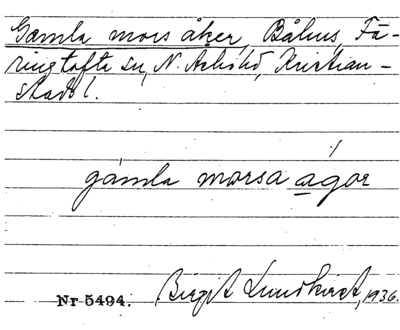 Gamla mors åker, Bålhus, Fä-
ringtofta sn, N. Åsbo hd, Kristian-
stads l.
gámla morsa agór
Nr 5494. Birgit Lundkvist, 1936.